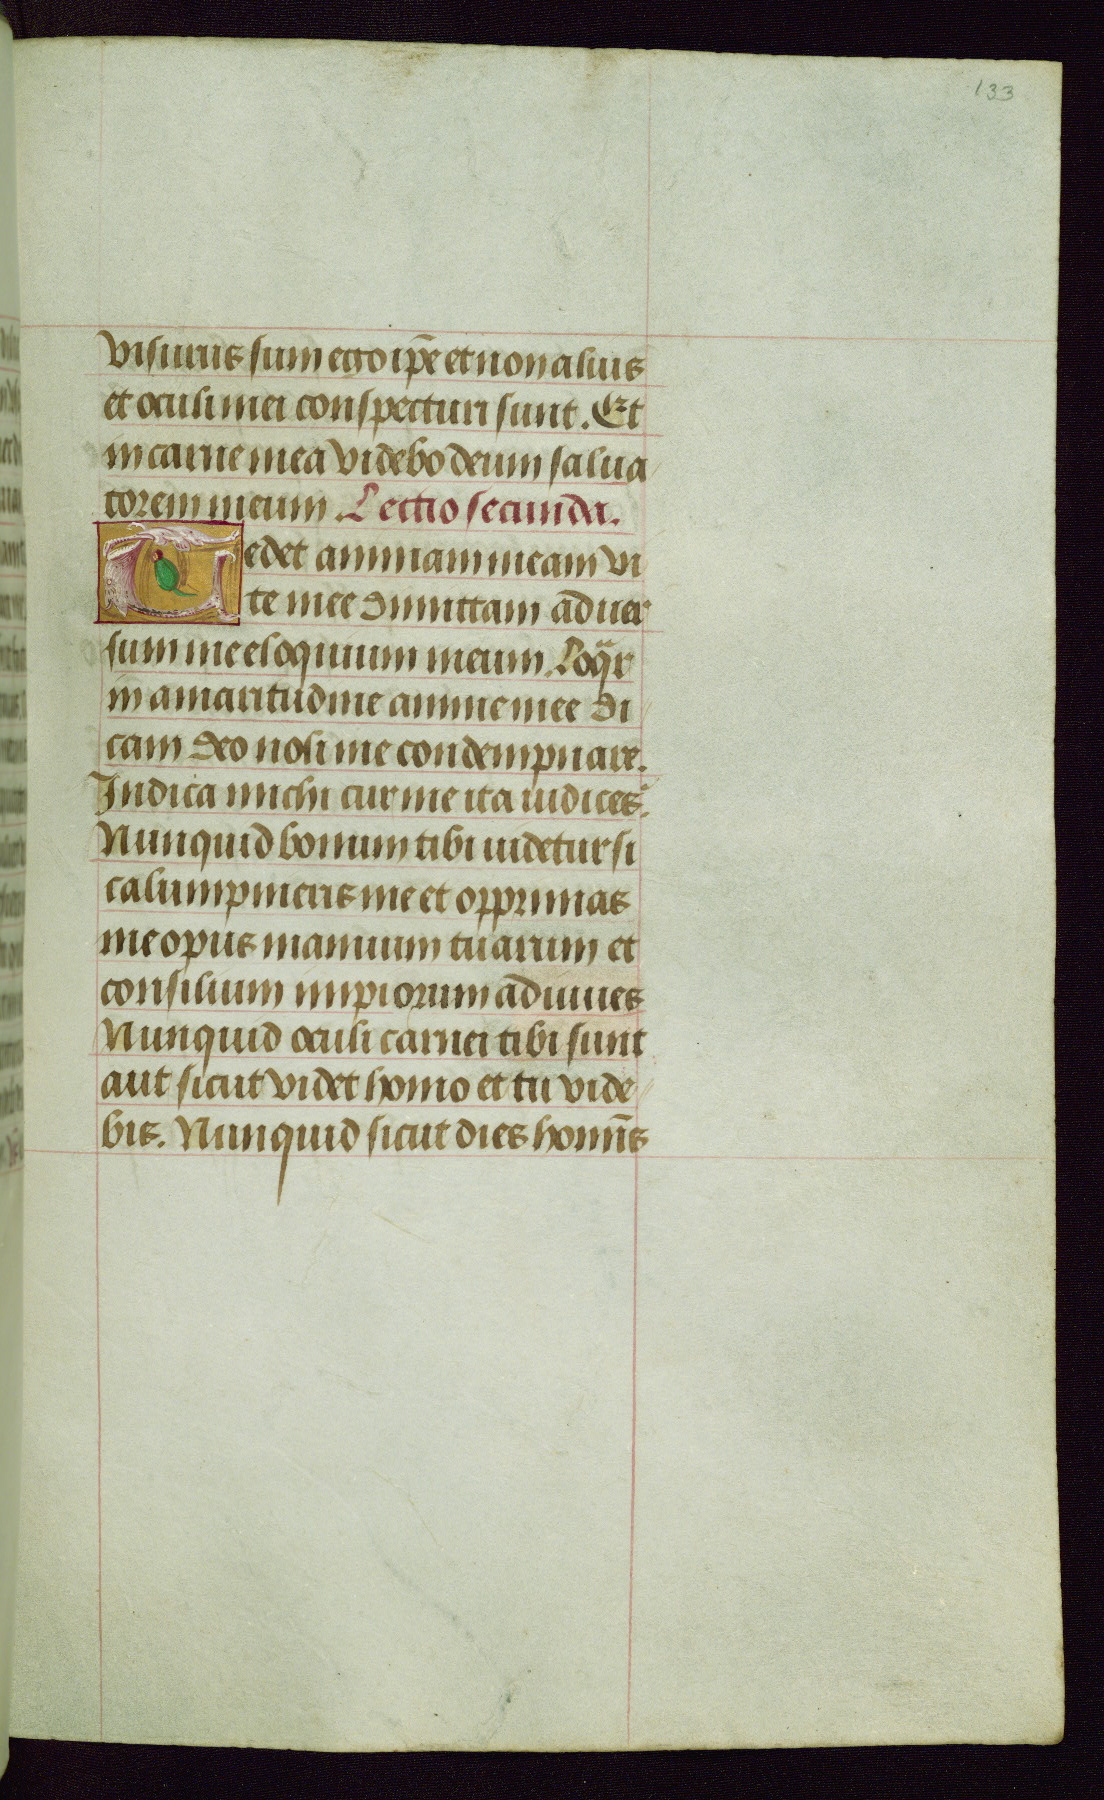 133
visurus sum ego ip̄e et non alius
et oculi mei conspecturi sunt. Et
in carne mea videbo deum salua
torem meum. Lectio secunda.
Tedet animam meam vi
te mee dimittam aduer
sum me eloquium meum. Loq̄r
in amaritudine anime mee di
cam deo noli me condempnare.
Indica michi cur me ita iudices.
Nunquid bonum tibi uidetur si
calumpnieris me et opprimas
me opus manuum tuarum et
consilium impiorum adiuues
Nunquid oculi carnei tibi sunt
aut sicut videt homo et tu vide
bis. Nunquid sicut dies homīs